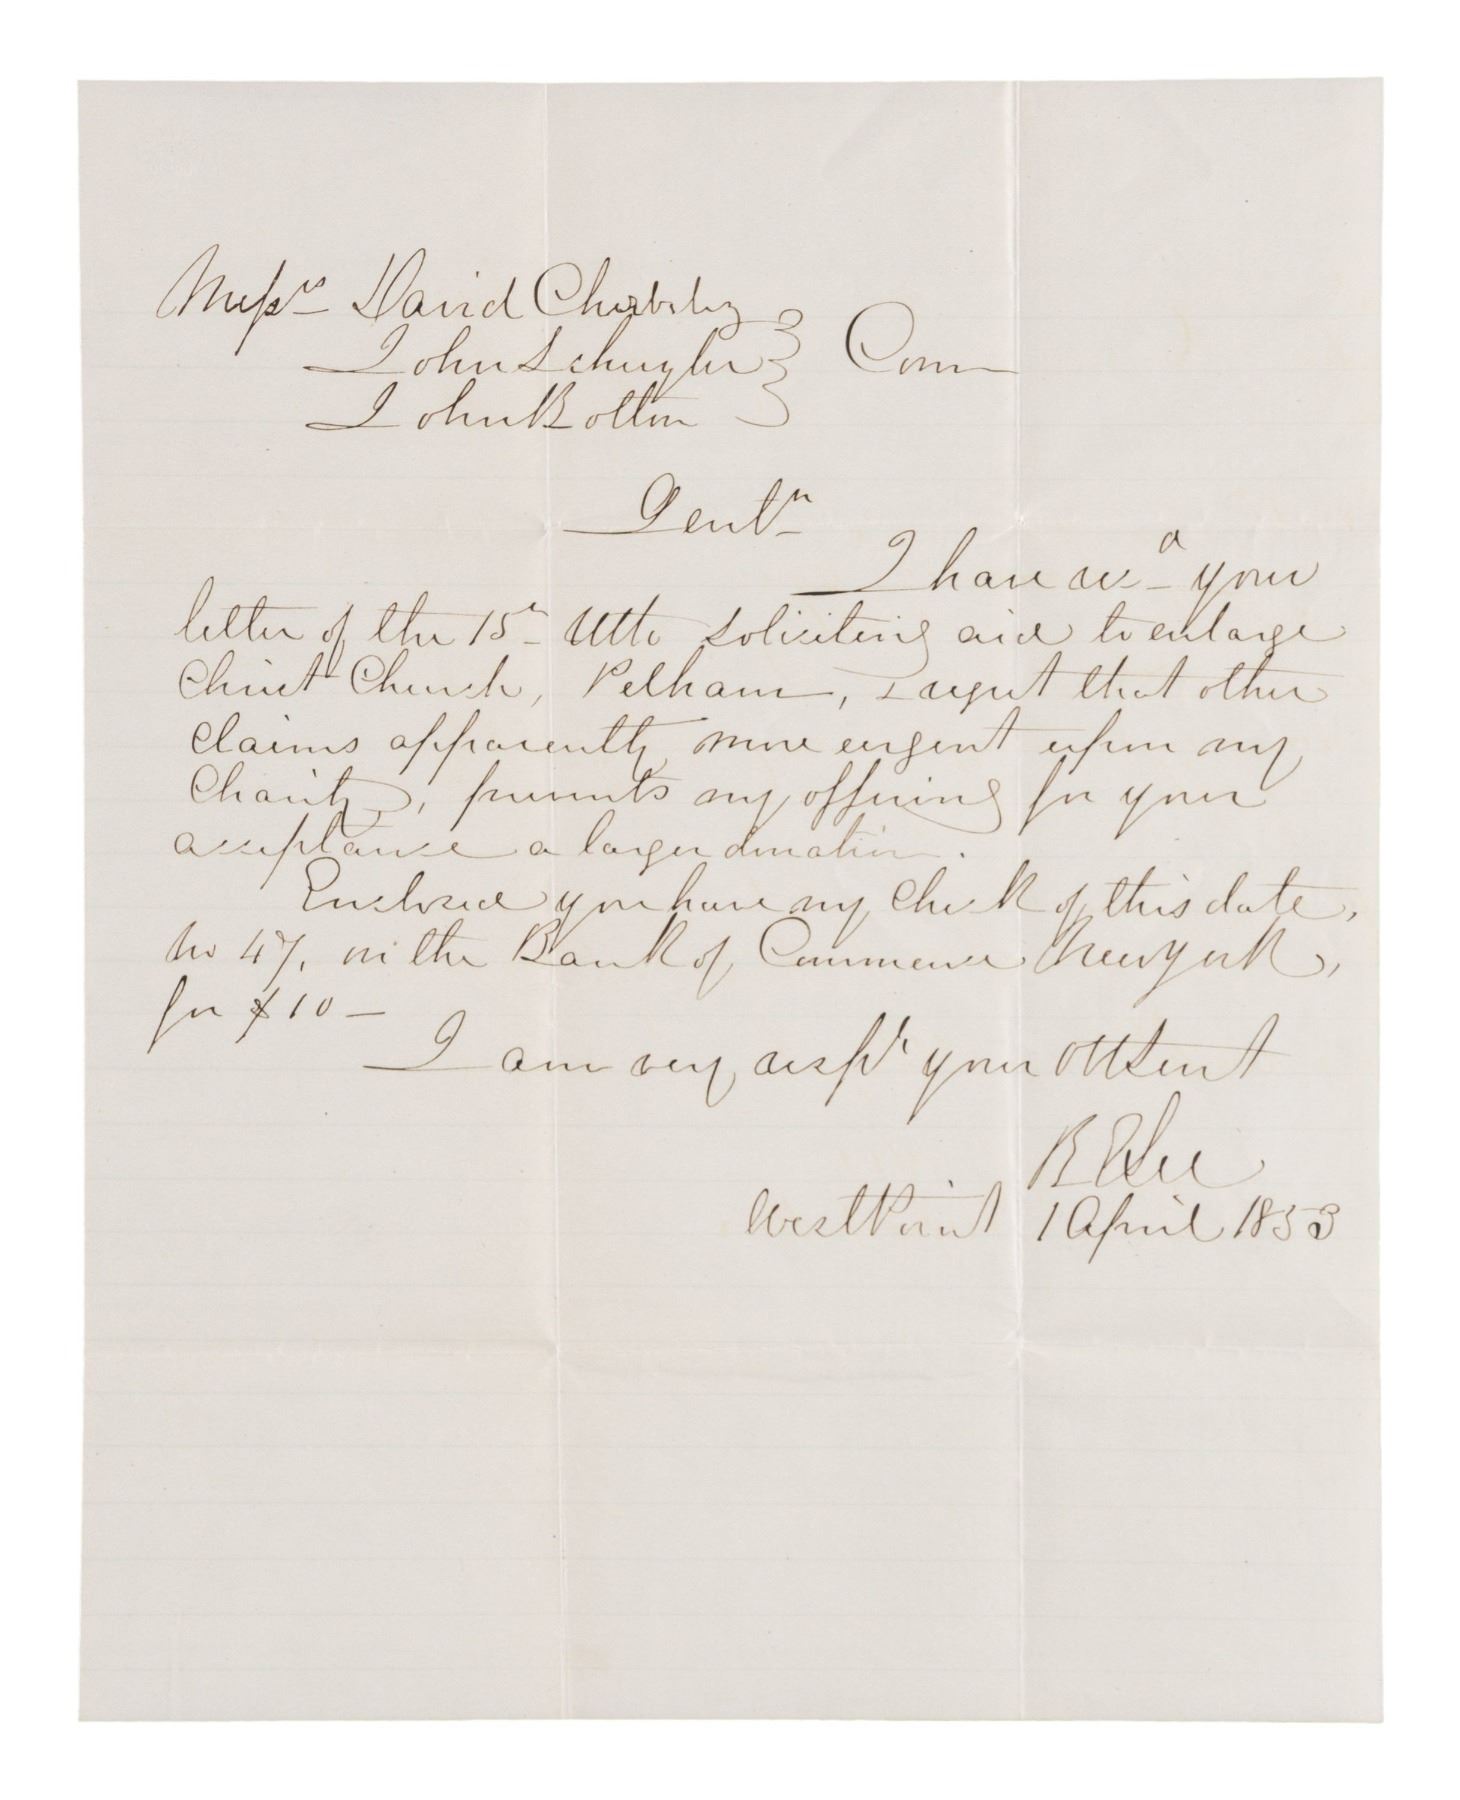 Messrs David
John Schuyler } Com
John Bolton
Gentn
I have recd your
letter of the 15th Ulto soliciting aid to enlarge
Christ Church, Pelham, & regret that other
claims apparently more urgent upon my
Charity, prevents my offering for your
acceptance a larger donation.
Enclosed you have my check of this date,
No 47, on the Bank of Commerce New York,
for $10 —
I am very respy your obtsent
R E Lee
West Point 1 April 1853